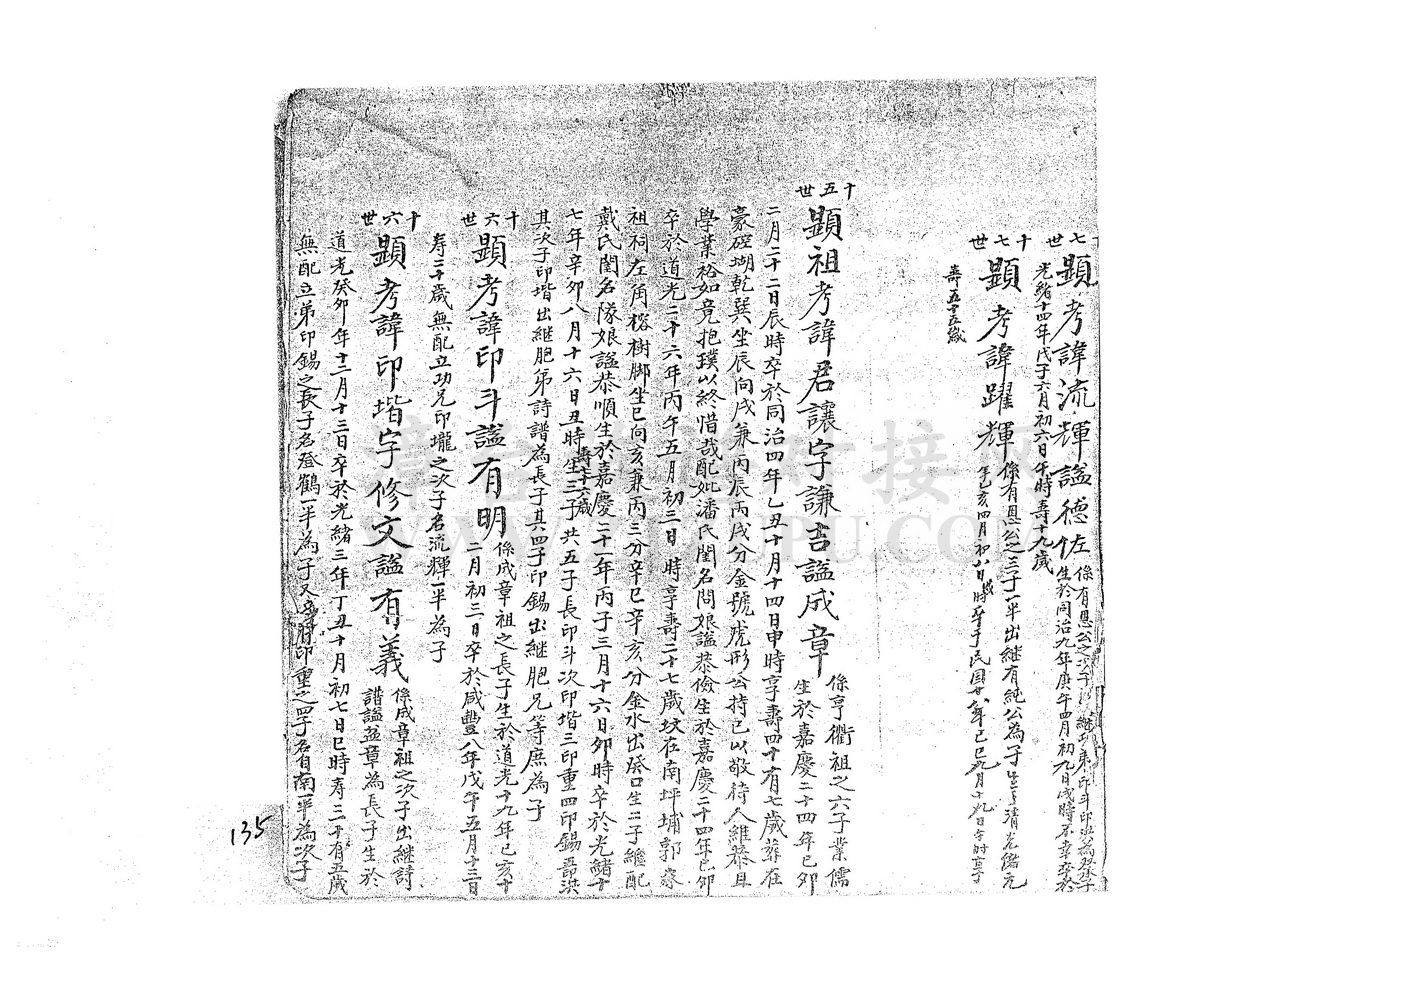 十七世
顯考諱流輝諡德佐
係有恩公之次子
生於同治九年庚午四月初九日戌時不幸卒於
光緒十四年戊子六月初六日午時壽十九歲
十七世
顯考諱躍輝
係有恩公之三子一半出繼有純公為子生於清光緒元
年乙亥四月初八日時卒于民國廿八年己巳月十九日午時享于
壽五十五歲
十五世
顯祖考諱君讓字謙吉諡成章
係亨衢祖之六子業儒
生於嘉慶二十四年己卯
二月二十二日辰時卒於同治四年乙丑十月十四日申時享壽四十有七歲葬在
豪硿坳乾巽坐辰向戌兼丙辰丙戌分金號虎形公持己以敬待人維恭且
學業裕如竟抱璞以終惜哉配妣潘氏閨名問娘諡恭儉生於嘉慶二十四年己卯
卒於道光二十六年丙午五月初三日時享壽二十七歲坟在南坪埔郭家
祖祠左角榕樹脚坐巳向亥兼丙三分辛巳辛亥分金水出癸口生二子繼配
戴氏閨名隊娘諡恭順生於嘉慶二十一年丙子三月十六日卯時卒於光緒十
七年辛卯八月十六日丑時壽七十六歲生三子共五子長印斗次印堦三印重四印錫
其次子印堦出繼胞弟詩譜為長子其四子印錫出繼胞兄等庶為子
十六世
顯考諱印斗諡有明
係成章祖之長子生於道光十九年己亥十
二月初三日卒於咸豐八年戊午五月十三日
寿二十歲無配立功兄印壠之次子名流輝一半為子
十六世
顯考諱印堦字修文諡有義
係成章祖之次子出繼詩
譜諡益章為長子生於
道光癸卯年十二月十三日卒於光緒三年丁丑十月初七日巳時寿三十有五歲
無配立弟印錫之長子名登鶴一半為子又印重之四子名有南一半為次子
135
章台族谱对接网
WWW.ZTZUPU.COM